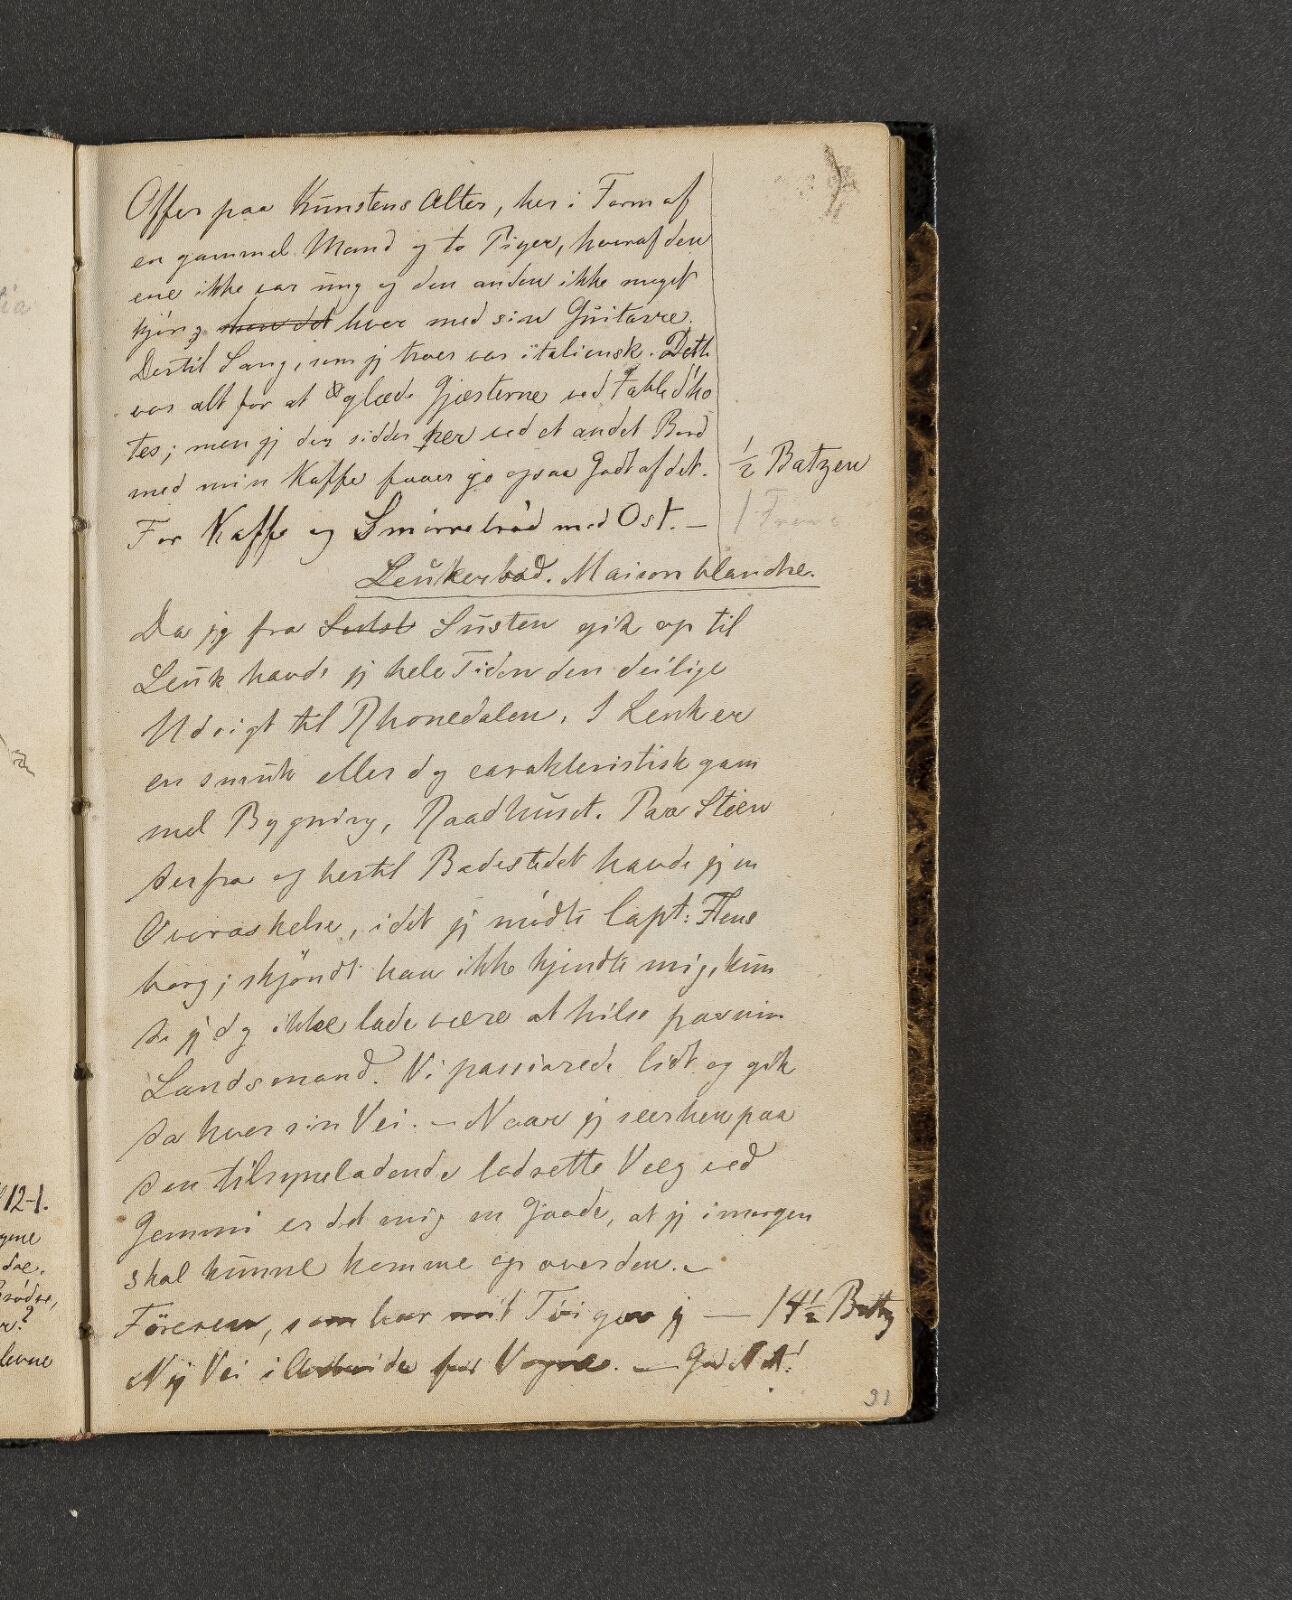 Offer paa Kunstens Alter, her i Form af
en gammel Mand og to Piger, hvoraf den
ene ikke var ung og den anden ikke meget
kjøn, men det hver med sin Guitarre.
Dertil Sang, som jeg troer var italiensk. Dette
var alt for at glæde Gjæsterne ved Table d'ho
tes; men jeg der sidder her ved et andet Bord
med min Kaffe faaer jo ogsaa Godt af det. ½ Batzen
For Kaffe og Smørrebrød med Ost. — 1 Franc
Leukerbad. Maison blanche.
Da jeg fra Susten gik op til
Leuk havde jeg hele Tiden den deilige
Udsigt til Rhonedalen. I Leuk er
en smuk eller dog carakteristisk gam
mel Bygning, Raadhuset. Paa Stien
derfra og hertil Badestedet havde jeg en
Overraskelse, idet jeg mødte Capt: Flens
borg; skjøndt han ikke kjendte mig, kun
de jeg dog ikke lade være at hilse paa min
Landsmand. Vi passiarede lidt og gik
da hver sin Vei. — Naar jeg seer hen paa
den tilsyneladende lodrette Væg ved
Gemmi er det mig en Gaade, at jeg imorgen
skal kunne komme op over den. —
Föreren, som har mit Tøi giver jeg — 14½ Batz
Ny Vei for Vogne. — God Nat!
31
12-1.